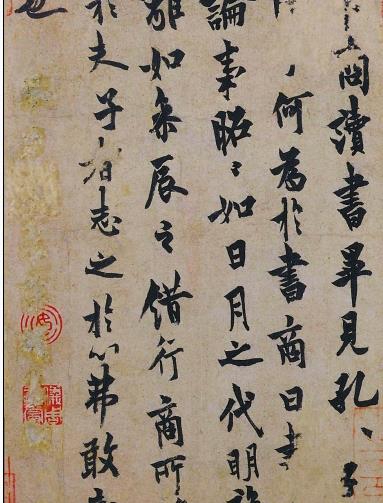 商讀書畢見孔〻子
何為於書商曰書
論事昭〻如日月之代明
離如參辰之錯行商所
於夫子者志之於心弗敢
也